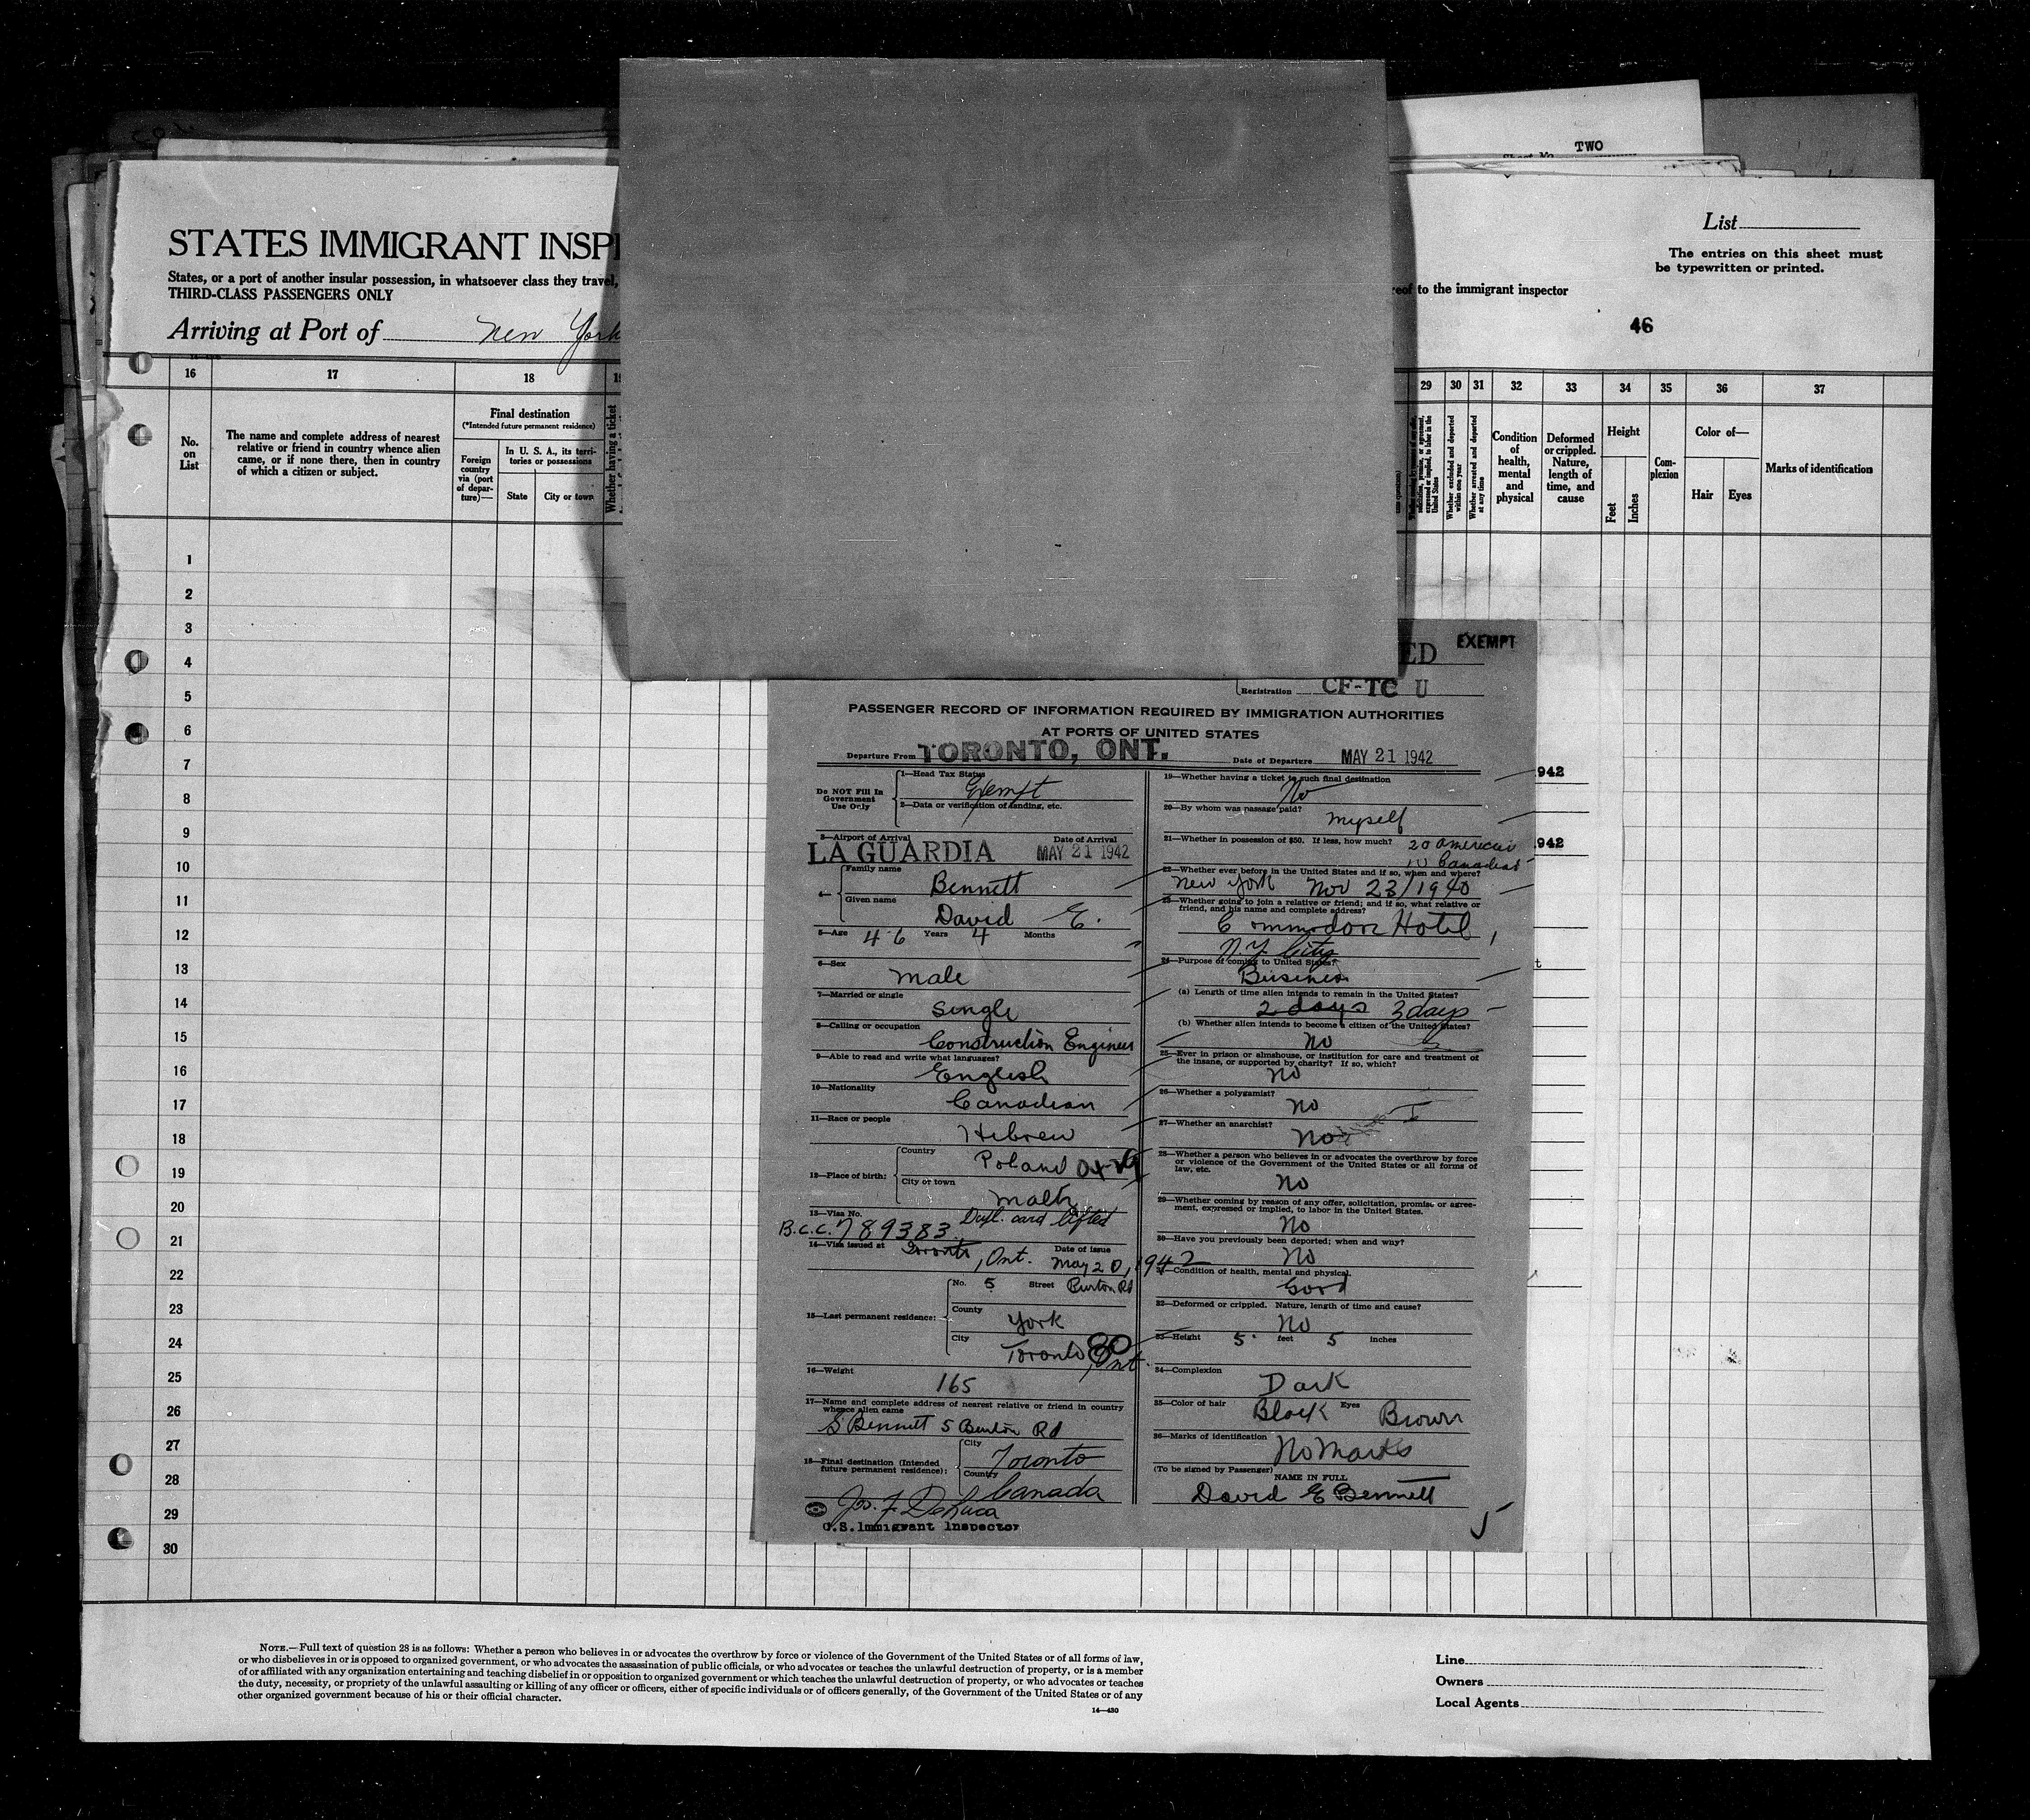 TWO
List
STATES IMMIGRANT INSP
The entries on this sheet must
be typewritten or printed.
States, or a port of another insular possession, in whatsoever class they travel,
reof to the immigrant inspector
THIRD-CLASS PASSENGERS ONLY
Arriving at Port of New York
46
16 17 18 29 30 31 32 33 34 35 36 37
No. on List
The name and complete address of nearest
relative or friend in country whence alien
came, or if none there, then in country
of which a citizen or subject.
Final destination
(*Intended future permanent residence)
Foreign country via (port of departure)—
In U. S. A., its territories or possessions
State City or town
Whether having a ticket
Whether excluded and deported within one year
Whether arrested and deported at any time
Condition of health, mental and physical
Deformed or crippled. Nature, length of time, and cause
Height
Feet Inches
Complexion
Color of—
Hair Eyes
Marks of identification
1
2
3
4
5
6
7
8
9
10
11
12
13
14
15
16
17
18
19
20
21
22
23
24
25
26
27
28
29
30
ED EXEMPT
Registration CF-TC U
PASSENGER RECORD OF INFORMATION REQUIRED BY IMMIGRATION AUTHORITIES
AT PORTS OF UNITED STATES
Departure From TORONTO, ONT. Date of Departure MAY 21 1942
Do NOT Fill In Government Use Only
1—Head Tax Status
Exempt
2—Data or verification of landing, etc.
3—Airport of Arrival Date of Arrival
LA GUARDIA MAY 21 1942
4—
Family name
Bennett
Given name
David E.
5—Age 46 Years 4 Months
6—Sex
Male
7—Married or single
Single
8—Calling or occupation
Construction Engineer
9—Able to read and write what languages?
English
10—Nationality
Canadian
11—Race or people
Hebrew
12—Place of birth:
Country
Poland
City or town
13—Visa No. Dupl. card lifted
B.C.C. 789383
14—Visa issued at Date of issue
Toronto, Ont. May 20, 1942
15—Last permanent residence:
No. 5 Street
County
York
City
Toronto Ont. 80
16—Weight
165
17—Name and complete address of nearest relative or friend in country
whence alien came
S Bennett 5 Rd
18—Final destination (Intended
future permanent residence):
City
Toronto
Country
Canada
Jos. F. DeLuca
U.S. Immigrant Inspector
19—Whether having a ticket to such final destination
No
20—By whom was passage paid?
Myself
21—Whether in possession of $50. If less, how much? 20 American
10 Canadian
22—Whether ever before in the United States and if so, when and where?
New York Nov 23/1940
23—Whether going to join a relative or friend; and if so, what relative or
friend, and his name and complete address?
Commodore Hotel,
N.Y. City
24—Purpose of coming to United States?
Business
(a) Length of time alien intends to remain in the United States?
2 days 3 days
(b) Whether alien intends to become a citizen of the United States?
No
25—Ever in prison or almshouse, or institution for care and treatment of
the insane, or supported by charity? If so, which?
No
26—Whether a polygamist?
No
27—Whether an anarchist?
No
28—Whether a person who believes in or advocates the overthrow by force
or violence of the Government of the United States or all forms of
law, etc.
No
29—Whether coming by reason of any offer, solicitation, promise or agree-
ment, expressed or implied, to labor in the United States.
No
30—Have you previously been deported; when and why?
No
31—Condition of health, mental and physical.
Good
32—Deformed or crippled. Nature, length of time and cause?
No
33—Height 5 feet 5 inches
34—Complexion
Dark
35—Color of hair Black Eyes Brown
36—Marks of identification
No Marks
(To be signed by Passenger)
NAME IN FULL
David E Bennett
1942
1942
t
NOTE.—Full text of question 28 is as follows: Whether a person who believes in or advocates the overthrow by force or violence of the Government of the United States or of all forms of law,
or who disbelieves in or is opposed to organized government, or who advocates the assassination of public officials, or who advocates or teaches the unlawful destruction of property, or is a member
of or affiliated with any organization entertaining and teaching disbelief in or opposition to organized government or which teaches the unlawful destruction of property, or who advocates or teaches
the duty, necessity, or propriety of the unlawful assaulting or killing of any officer or officers, either of specific individuals or of officers generally, of the Government of the United States or of any
other organized government because of his or their official character.
14—430
Line
Owners
Local Agents